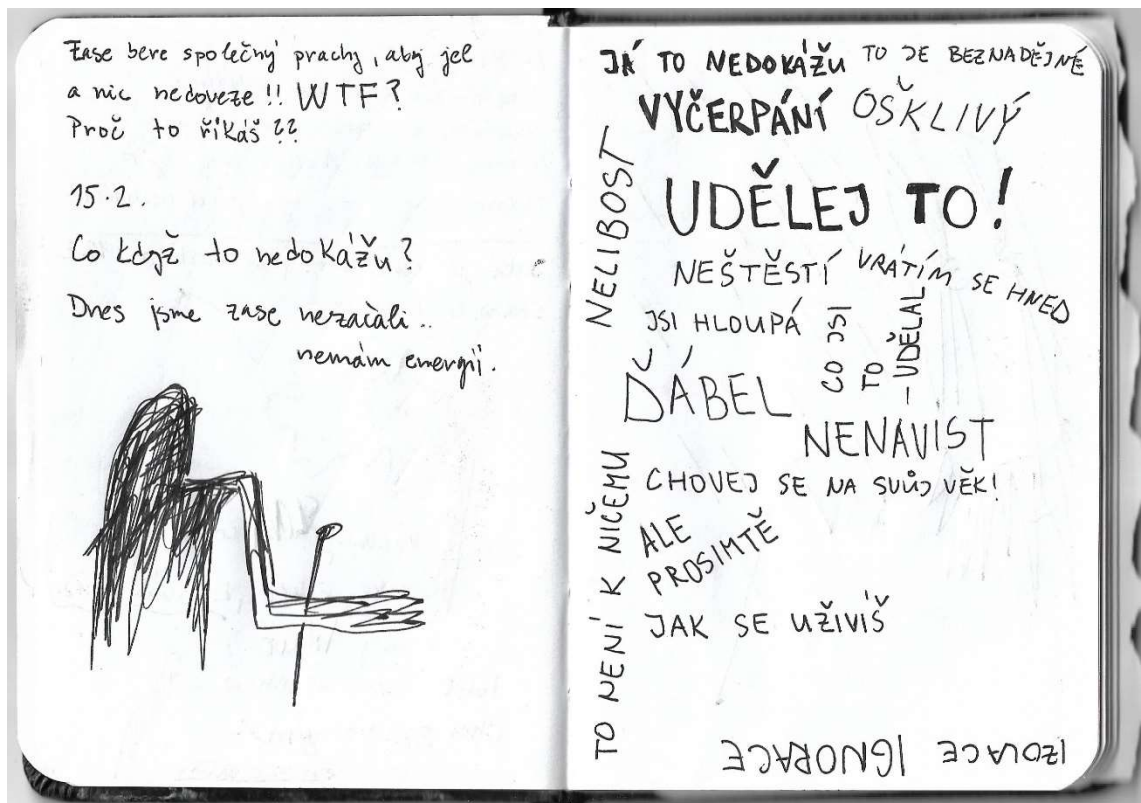 Zase bere společný prachy, aby jel
a nic nedoveze!! WTF?
Proč to říkáš??
15.2.
Co když to nedokážu?
Dnes jsme zase nezačali..
nemám energii.
JÁ TO NEDOKÁŽU
TO JE BEZNADĚJNÉ
VYČERPÁNÍ
OŠKLIVÝ
NELIBOST
UDĚLEJ TO!
NEŠTĚSTÍ
VRÁTÍM SE HNED
JSI HLOUPÁ
CO JSI
TO
UDĚLAL
ĎÁBEL
NENÁVIST
CHOVEJ SE NA SVŮJ VĚK!
TO NENÍ K NIČEMU
ALE
PROSIMTĚ
JAK SE UŽIVÍŠ
IZOLACE
IGNORACE